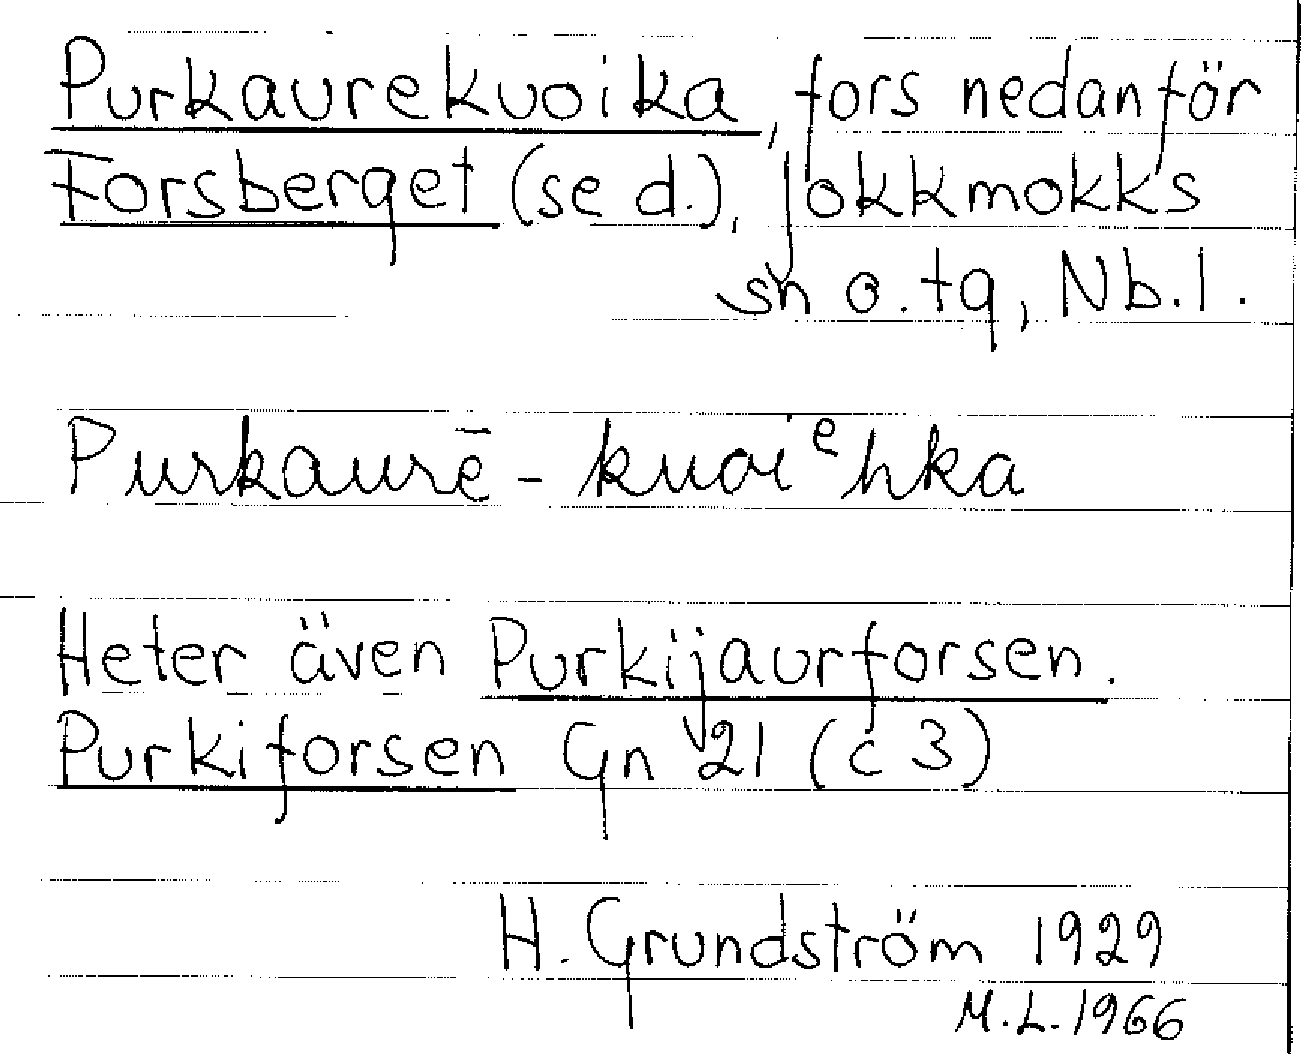 Purkaurekuoika, fors nedanför
Forsberget (se d.), Jokkmokks
sn o. tg, Nb. l.
Purkaurē - kuoiᵉhka
Heter även Purkijaurforsen.
Purkiforsen Gn V21 (c 3)
H. Grundström 1929
M.L. 1966